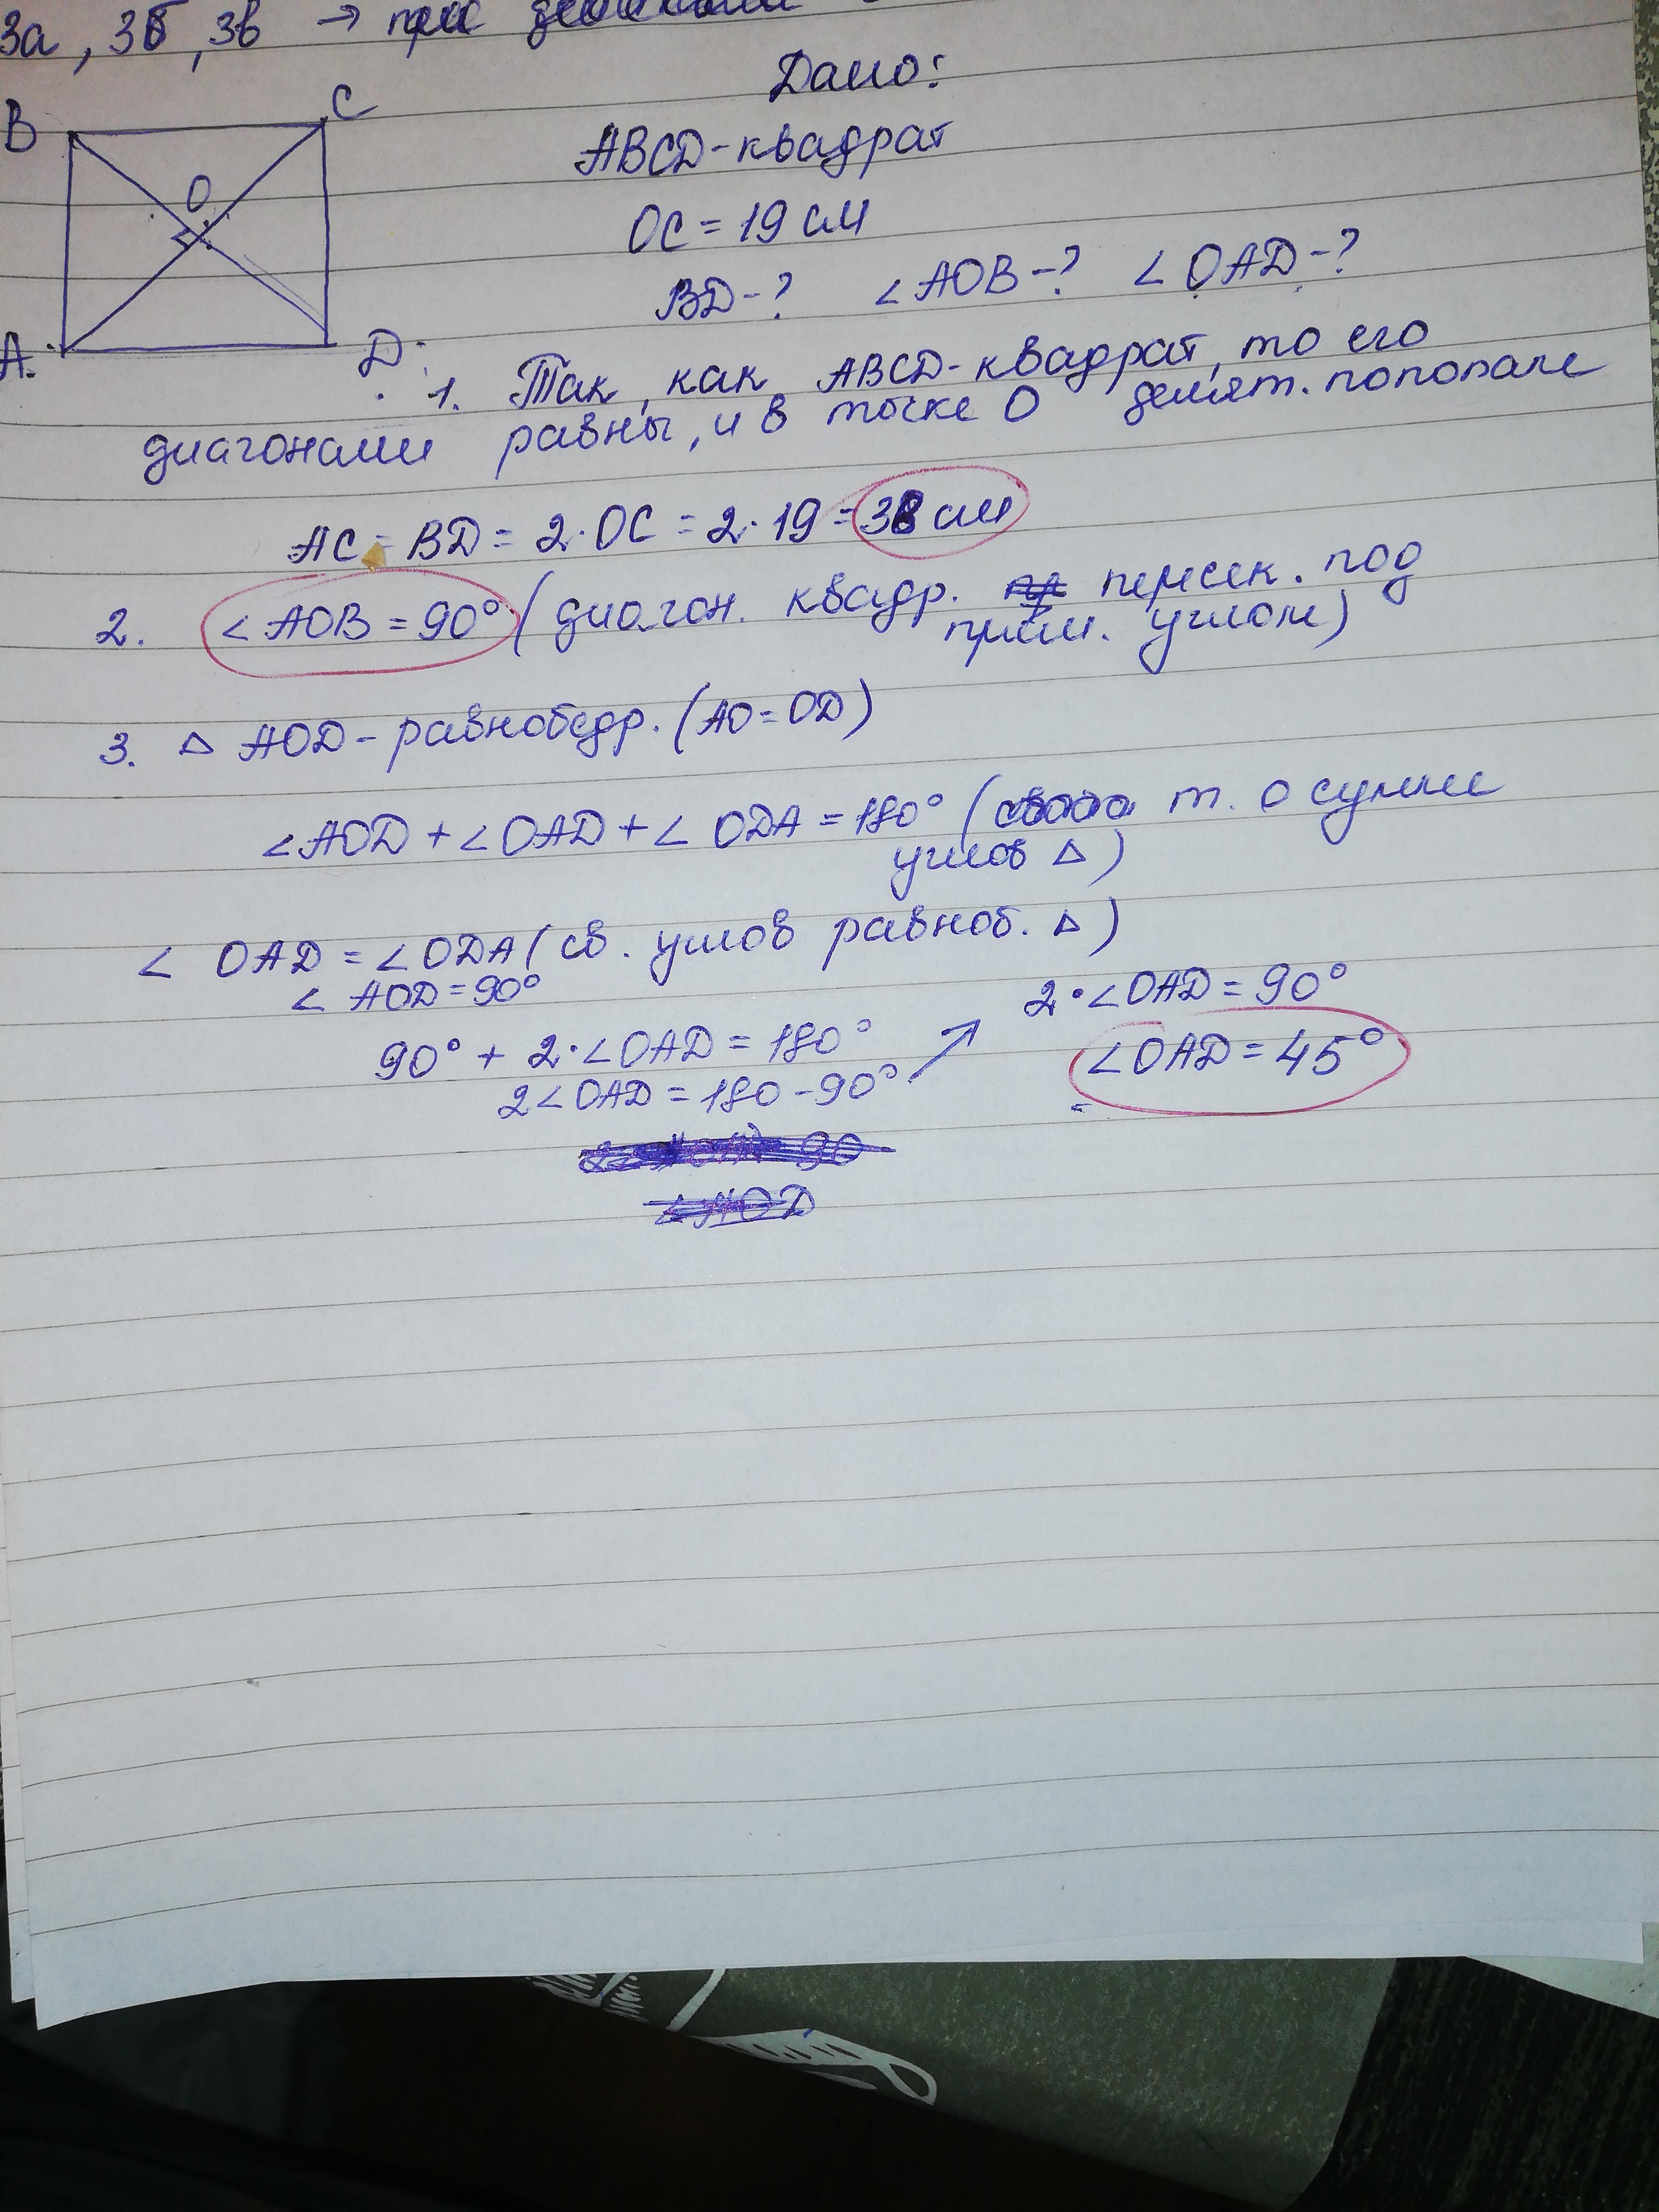 3а, 3б, 3в → при
B
C
O
A
D
Дано:
ABCD-квадрат
OC = 19 см
BD-? ∠AOB-? ∠OAD-?
1. Так, как ABCD-квадрат, то его
диагонали равны, и в точке O делят. пополам
AC = BD = 2·OC = 2·19 = 38 см
2. ∠AOB = 90° (диагон. квадр. пересек. под
прям. углом)
3. △ AOD - равнобедр. (AO = OD)
∠AOD + ∠OAD + ∠ODA = 180° ( т. о сумме
углов △)
∠ OAD = ∠ODA (св. углов равноб. △)
∠ AOD = 90°
90° + 2·∠OAD = 180°
2∠OAD = 180 - 90°
2·∠OAD = 90°
∠OAD = 45°